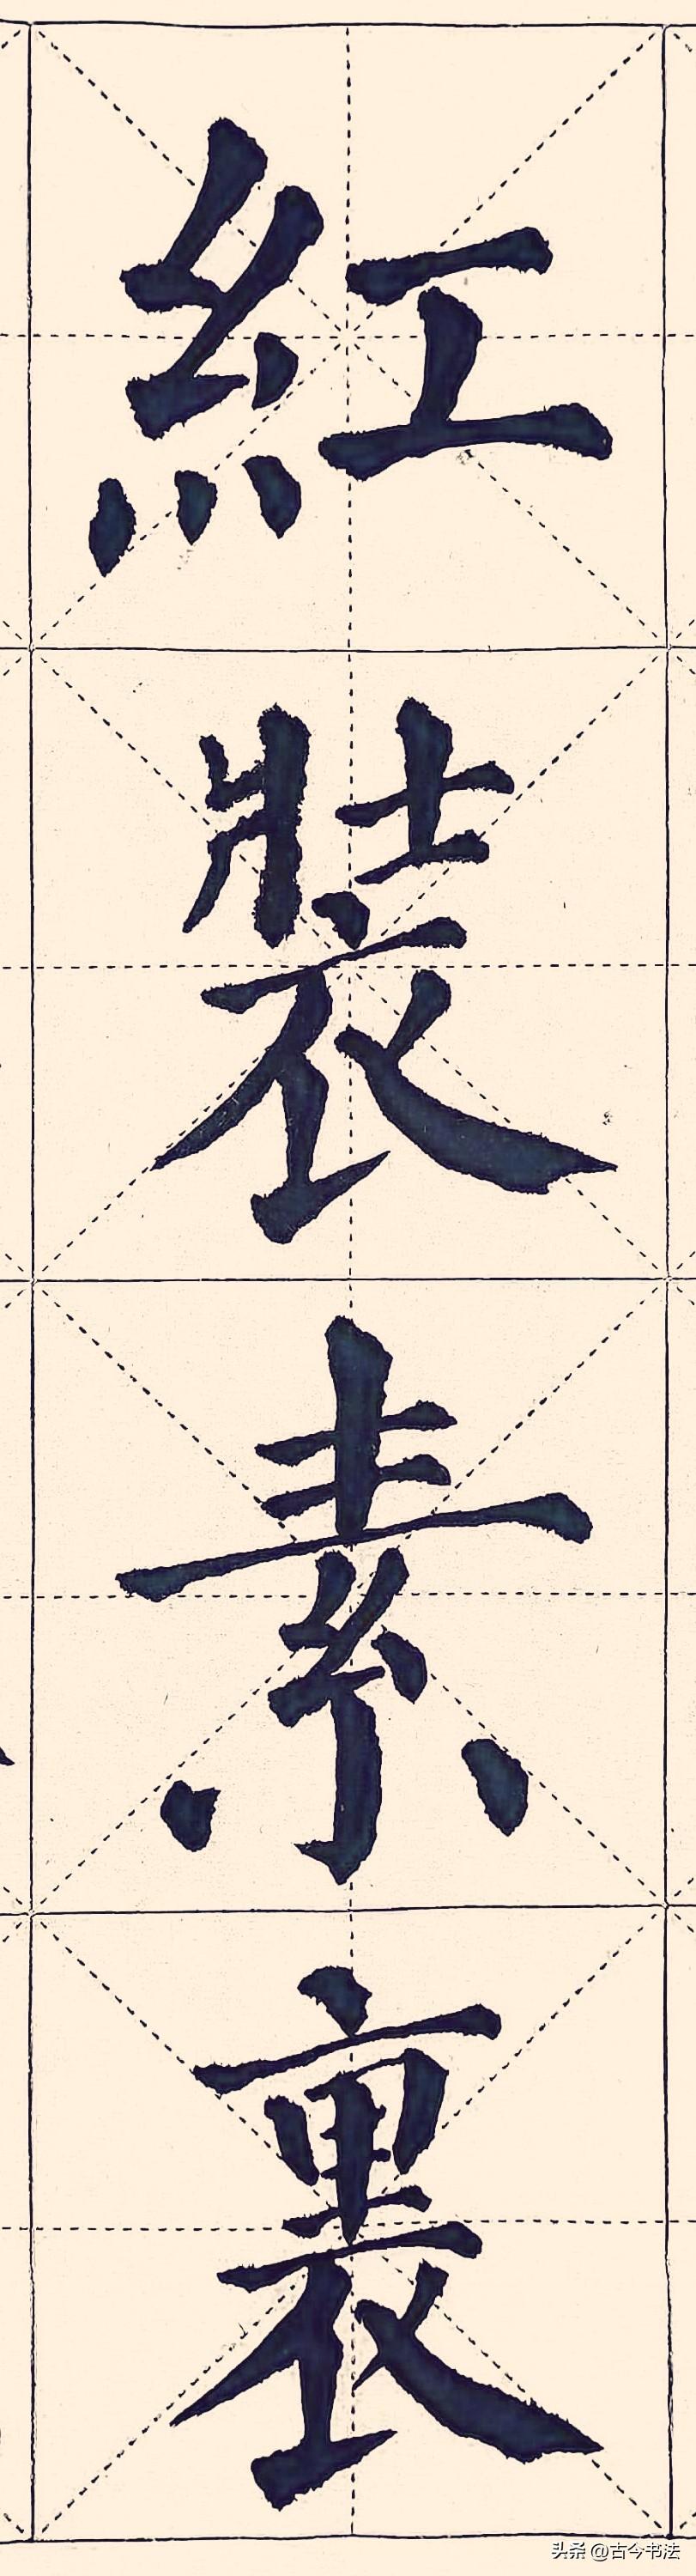 紅裝素裏
头条 @古今书法